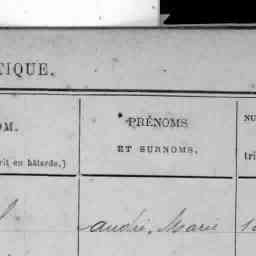 TIQUE.
OM.
PRÉNOMS
NU
ET SURNOMS.
rit en bâtarde.)
tri
André, Marie